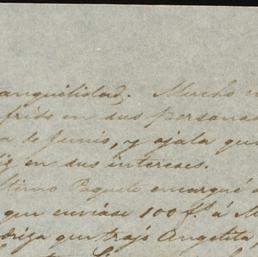 anquilidad. Mucho
frido en sus personas
de Junio, y ojala que
en sus intereses.
ltimo Paquete encargué
que enviase 100 f. á M
driza que trajo Angelita,